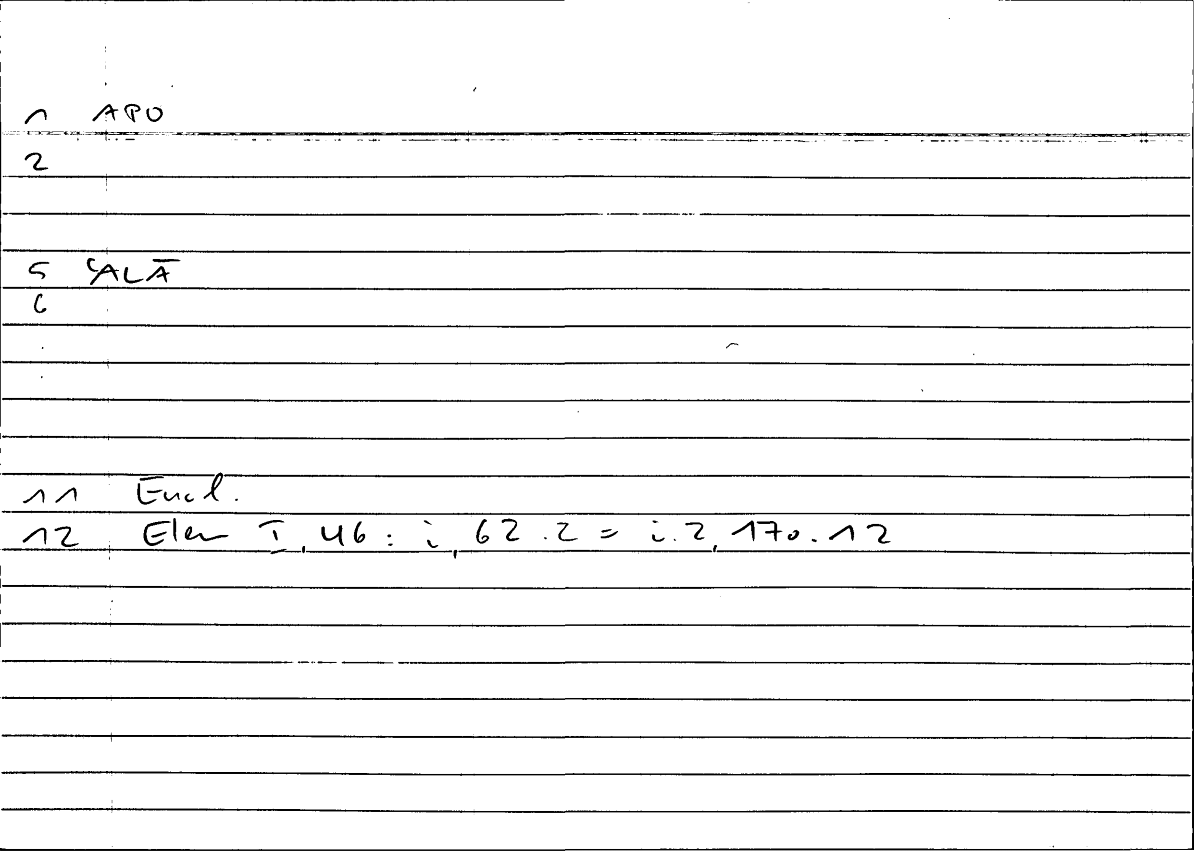 1 APO
2
5 ʿALĀ
6
11 Eucl.
12 Elem I, 46 : i, 62.2 = i.2, 170.12